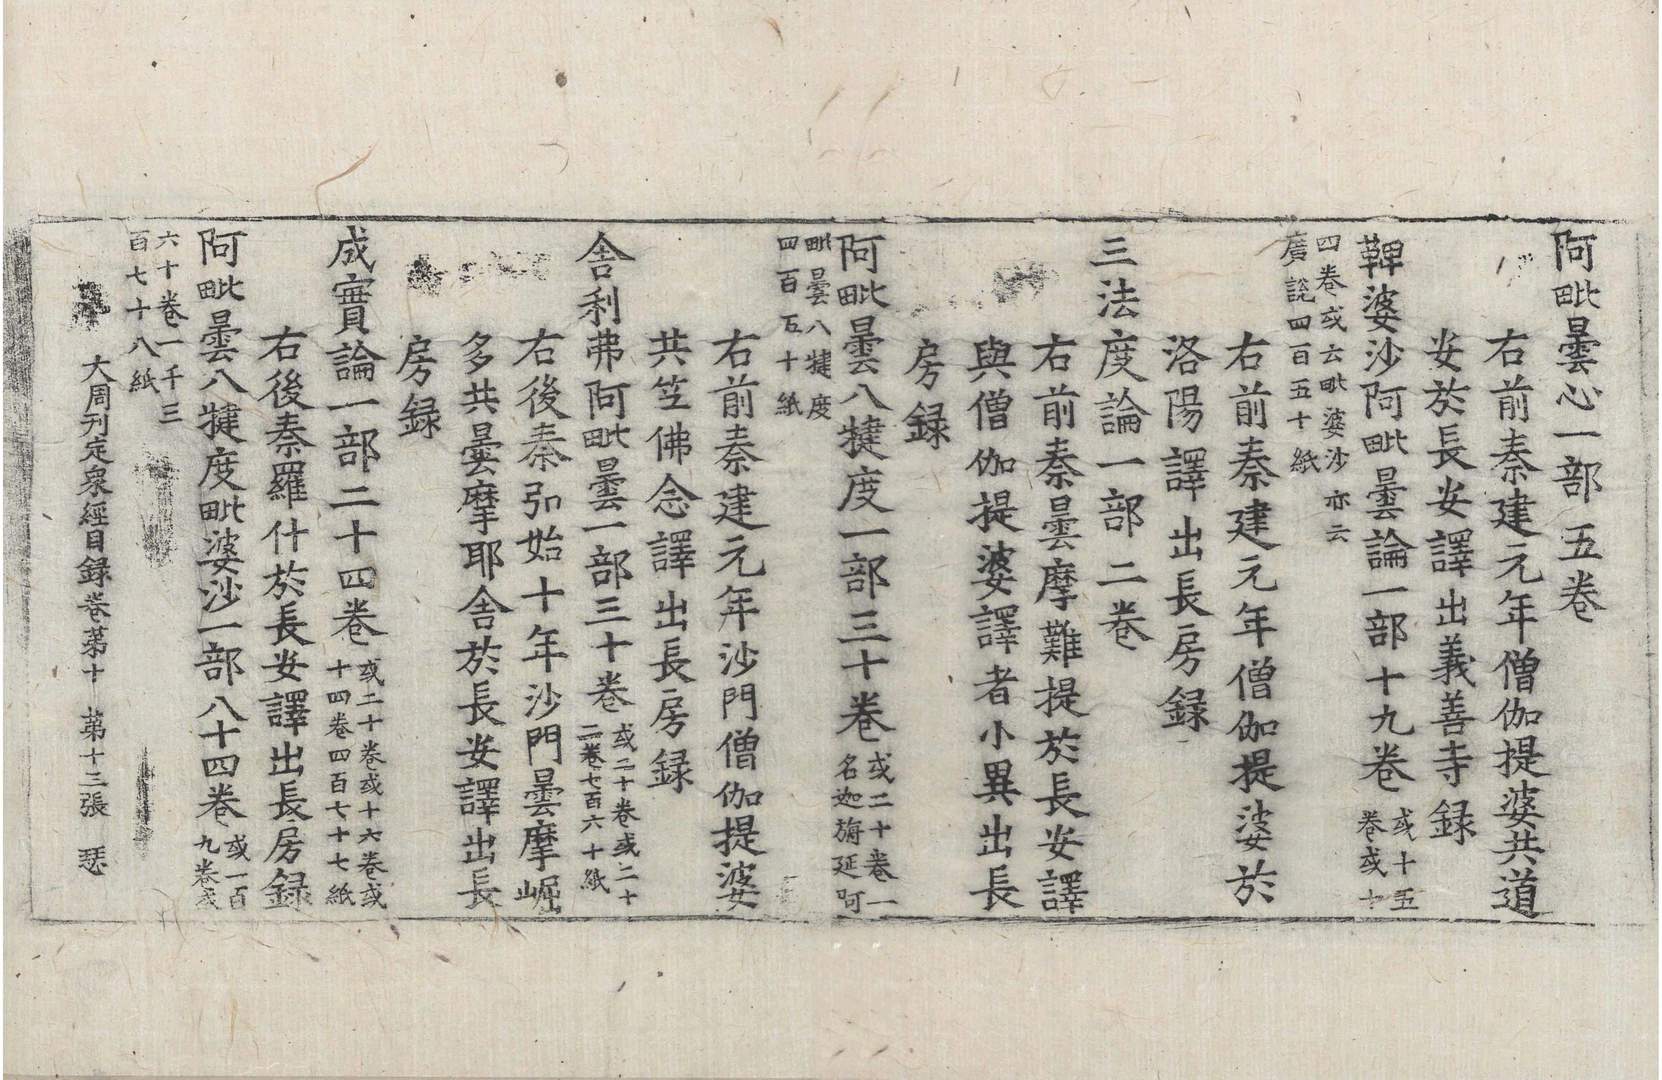 阿毗曇心一部五卷
右前秦建元年僧伽提婆共道
安於長安譯出義善寺録
鞞婆沙阿毗曇論一部十九卷或十五
卷或十
四卷或云毗婆沙亦云
廣説四百五十紙
右前秦建元年僧伽提婆於
洛陽譯出長房録
三法度論一部二卷
右前秦曇摩難提於長安譯
與僧伽提婆譯者小異出長
房録
阿毗曇八犍度一部三十卷或二十卷一
名迦旃延阿
毗曇八犍度
四百五十紙
右前秦建元年沙門僧伽提婆
共笠佛念譯出長房録
舍利弗阿毗曇一部三十卷或二十卷或二十
二卷七百六十紙
右後秦弘始十年沙門曇摩崛
多共曇摩耶舍於長安譯出長
房録
成實論一部二十四卷或二十卷或十六卷或
十四卷四百七十七紙
右後秦羅什於長安譯出長房録
阿毗曇八犍度毗婆沙一部八十四卷或一百
九卷或
六十卷一千三
百七十八紙
大周刊定衆經目録卷第十 第十三張 瑟